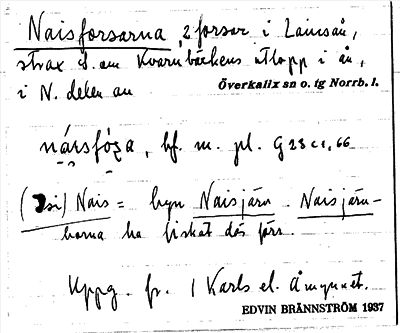 Naisforsarna, 2 forsar i Lainsån,
strax S. om Kvarnbäckens utlopp i ån,
i N. delen av
Överkalix sn o. tg Norrb. l.
bf. m. pl. G 23 c 1, 66
Nais = byn Naisjärv. Naisjärv-
borna ha fiskat där förr.
Uppg. fr. 1 Karls el. Åmynnet.
EDVIN BRÄNNSTRÖM 1937